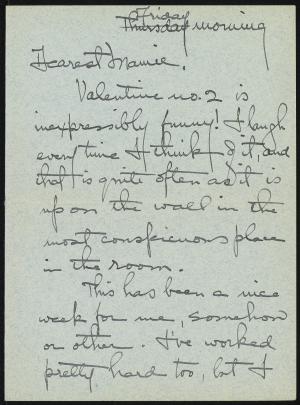 Friday
Thursday morning
Dearest Mamie,
Valentine no. 2 is
inexpressibly funny! I laugh
every time I think of it, and
that is quite often as it is
up on the wall in the
most conspicuous place
in the room.
This has been a nice
week for me, somehow
or other. I've worked
pretty hard too, but I